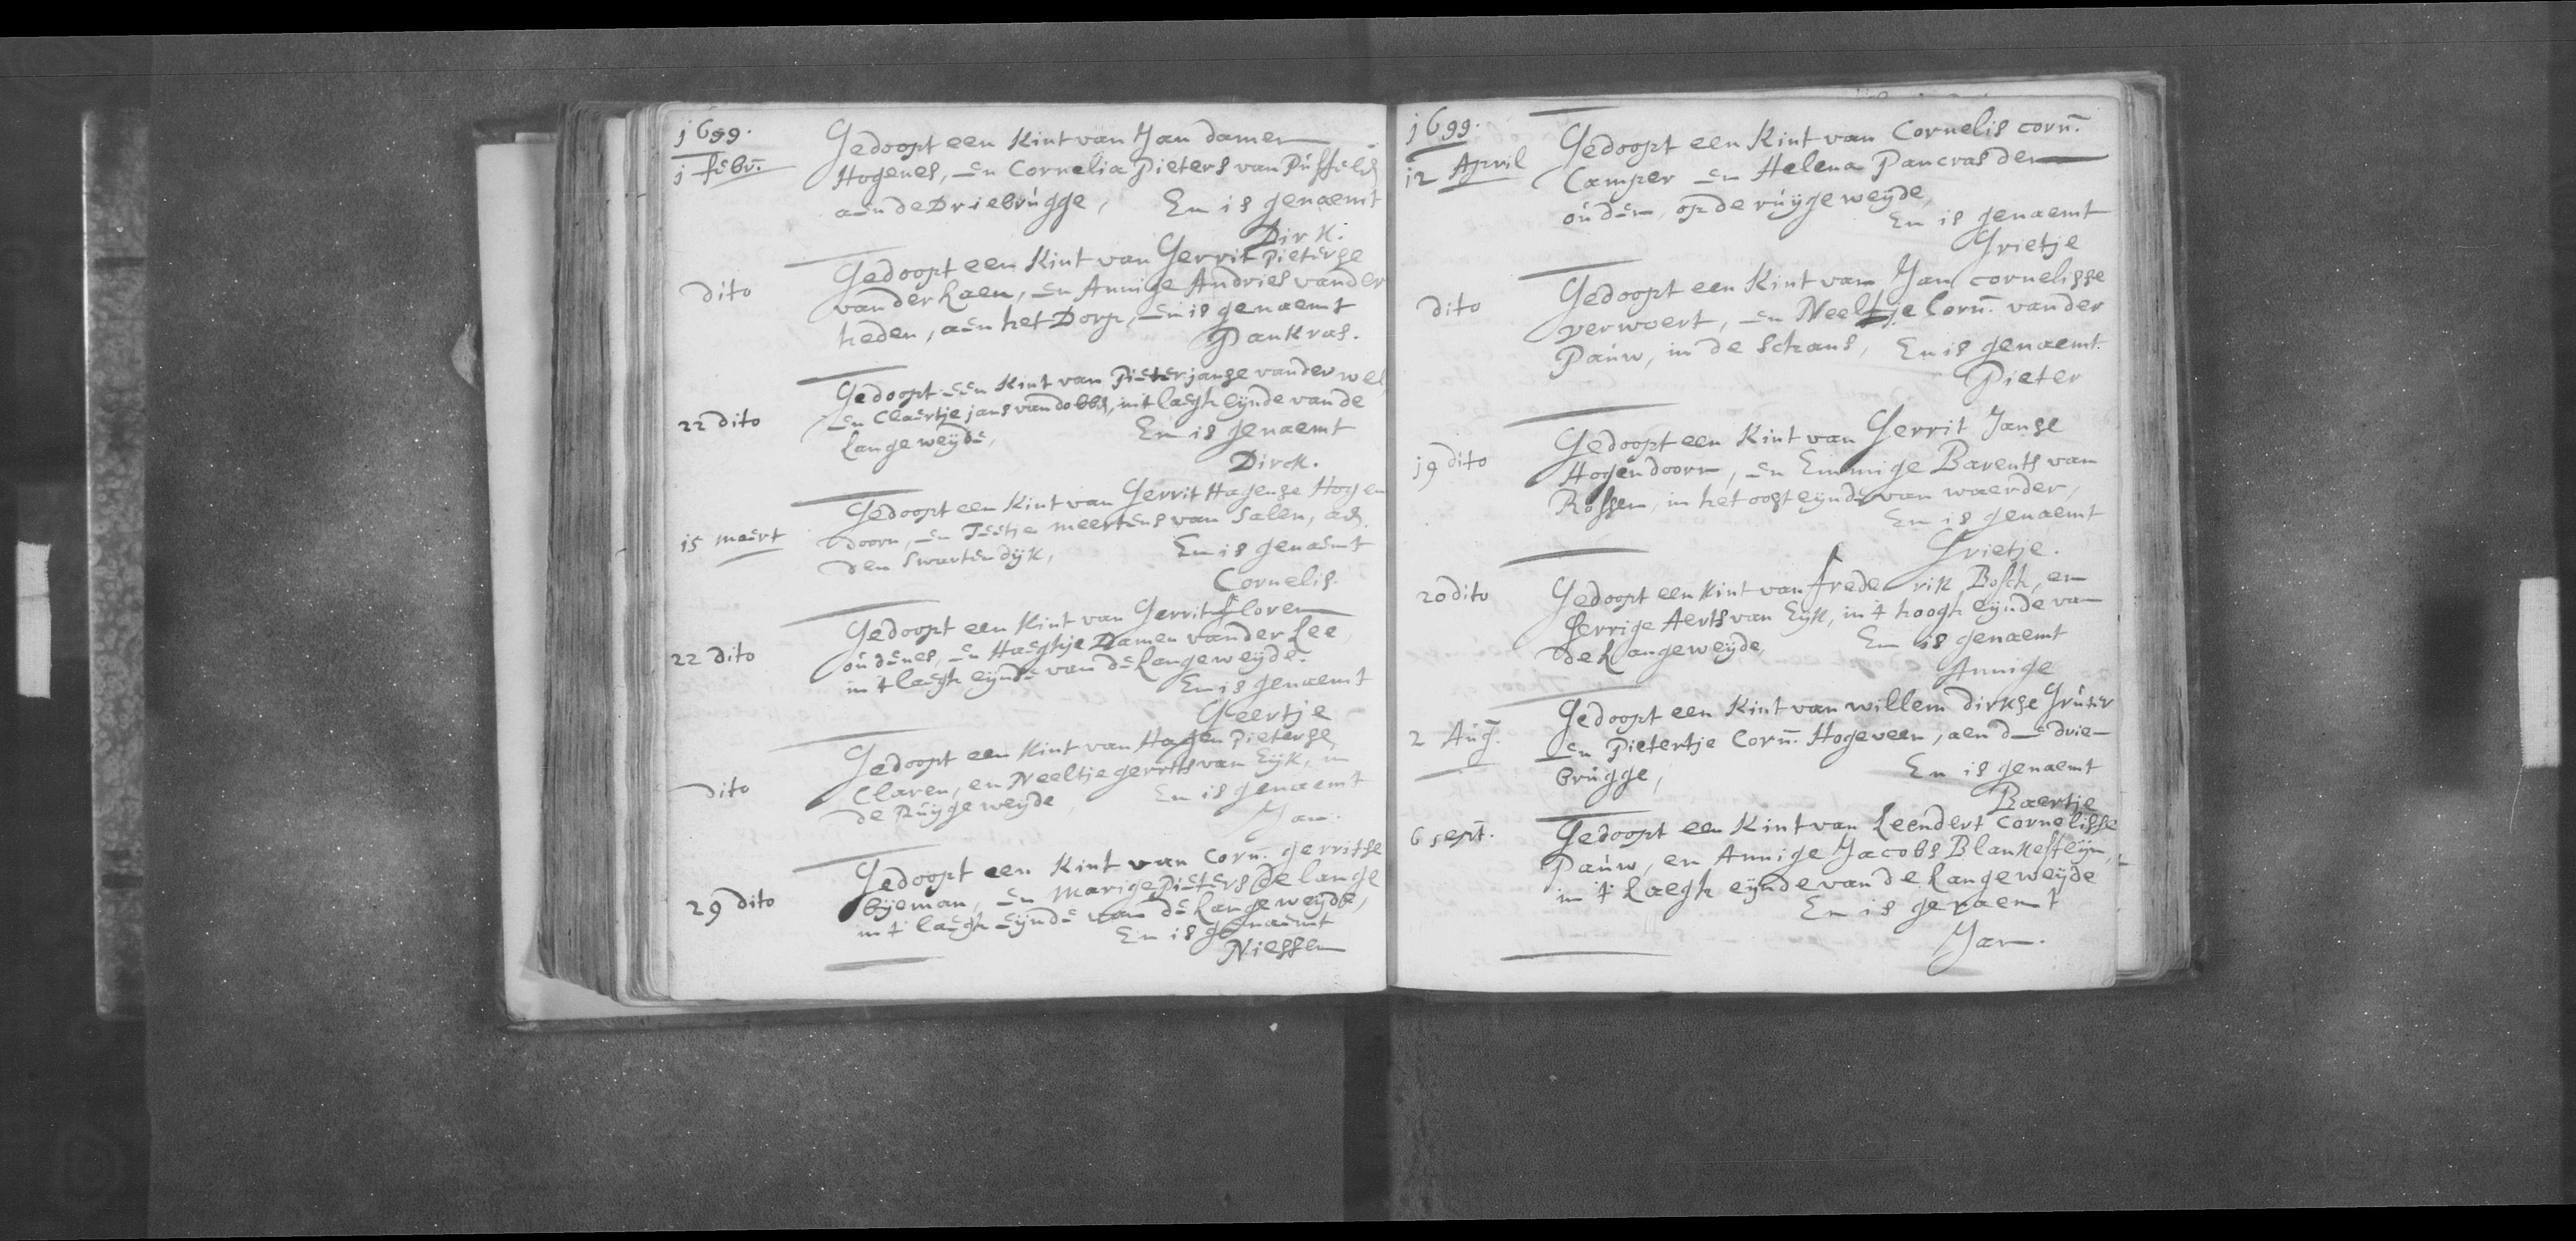 1699.
1 febr. Gedoopt een Kint van Jan damen
Hogenes, en Cornelia Pieters van
aen de Driebrugge, En is genaemt
Dirk.
dito Gedoopt een Kint van Gerrit Pieterse
vander Laen, en Annige Andries vander
heden, aen het Dorp, en is genaemt
Pankras.
22 dito Gedoopt een Kint van Pieter janse vander wel
en Claertje jans van dobbe, int laegh eynde vande
Langeweyde, En is genaemt
Dirck.
15 maert Gedoopt een Kint van Gerrit Hagense Hogen
doorn, en meertens van Salen, aen
den Swartendijk, En is genaemt
Cornelis.
22 dito Gedoopt een Kint van Gerrit Floren
oudenes, en Haeghje Damen vander Lee
in 't laegh eynde van de Langeweyde.
En is genaemt
Geertje
dito Gedoopt een Kint van Hagen Pieterse
Claren, en Neeltje gerrits van Eijk, in
de Ruijgeweyde, En is genaemt
Jan.
29 dito Gedoopt een Kint van Corn. gerritse
bijeman, en Marige Pieters de lange
in 't laegh eynde van de Langeweyde,
En is genaemt
Niessen
1699.
12 April Gedoopt een Kint van Cornelis corn.
Camper en Helena Pancras den
ouden, op de ruijgeweyde,
En is genaemt
Grietje
dito Gedoopt een Kint van Jan cornelisse
verwoert, en Neeltje Corn. vander
Pauw, in de Schans, En is genaemt.
Pieter
19 dito Gedoopt een Kint van Gerrit Janse
Hogendoorn, en Emmige Barents van
Rossen, in het oost eynde van waerder,
En is genaemt
Grietje.
20 dito Gedoopt een Kint van frederik Bosch, en
Gerrige Aerts van Eijk, in 't hoogh eynde van
de Langeweyde, En is genaemt
Annige
2 Aug. Gedoopt een Kint van willem dirkse Gruter
en Pietertje Corn. Hogeveen, aen de drie-
brugge, En is genaemt
Baertje
6 sept. Gedoopt een Kint van Leendert Cornelisse
Pauw, en Annige Jacobs Blankesteijn,
in 't Laegh eynde van de Langeweyde
En is genaemt
Jan.